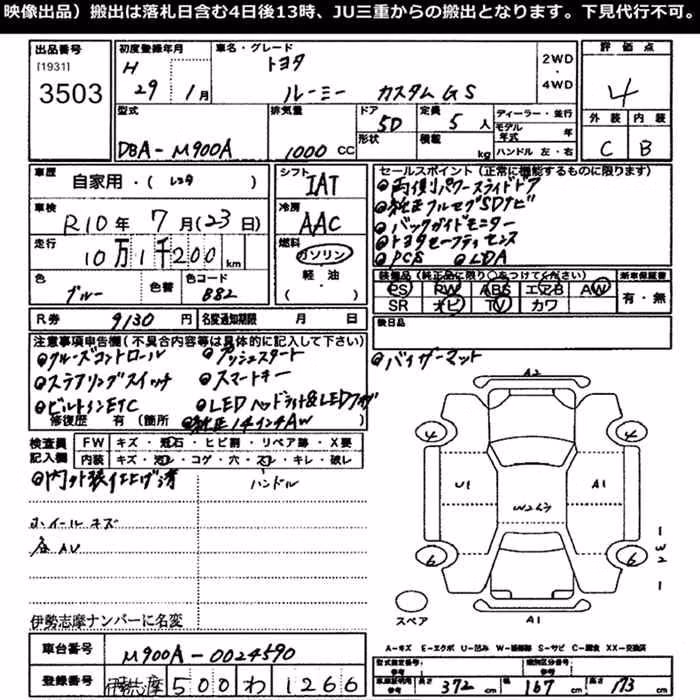 映像出品）搬出は落札日含む4日後13時、JU三重からの搬出となります。下見代行不可。
出品番号
[1931]
3503
初度登録年月
H
29 1月
車名・グレード
トヨタ
ルーミー カスタムGS
2WD
・
4WD
評価点
4
外装 内装
C B
型式
DBA-M900A
排気量
1000 CC
ドア
5D
形状
定員
5 人
積載
kg
ディーラー・並行
モデル年式 年
ハンドル 左・右
車歴
自家用・(レンタ )
車検
R10年 7月(23日)
走行
10万1千200 km
色
ブルー
色替
色コード
B82
シフト
IAT
冷房
AAC
燃料
ガソリン
軽・油
( )
セールスポイント（正常に機能するものに限ります）
両側パワースライドドア
純正フルセグSDナビ
バックガイドモニター
トヨタセーフティセンス
PCS LDA
装備品（純正品に限り○をつけてください）
PS PW ABS エアB AW
SR ナビ TV カワ
新車保証書
有・無
R券 9130 円
名変通知期限 月 日
後日品
注意事項申告欄（不具合内容等は具体的に記入して下さい）
クルーズコントロール プッシュスタート
ステアリングスイッチ スマートキー
ビルトインETC LEDヘッドライト&LEDフォグ
修復歴 有（箇所 純正14インチAW
バイザーマット
検査員記入欄
FW キズ・飛石・ヒビ割・リペア跡・X要
内装 キズ・汚れ・コゲ・穴・スレ・キレ・破レ
内外装仕上げ済
ハンドル
ホイールキズ
各AU
伊勢志摩ナンバーに名変
A2
4 4
U1 A1
W2W3
6 6
W2
スペア
A1
A-キズ E-エクボ U-凹み W-補修跡 S-サビ C-腐食 XX-交換済
車台番号
M900A-0024590
登録番号
伊勢志摩 500 わ 1266
型式指定番号
参考
類別区分番号
参考
車庫証明用
参考
長さ 372 cm
幅 167 cm
高さ 173 cm